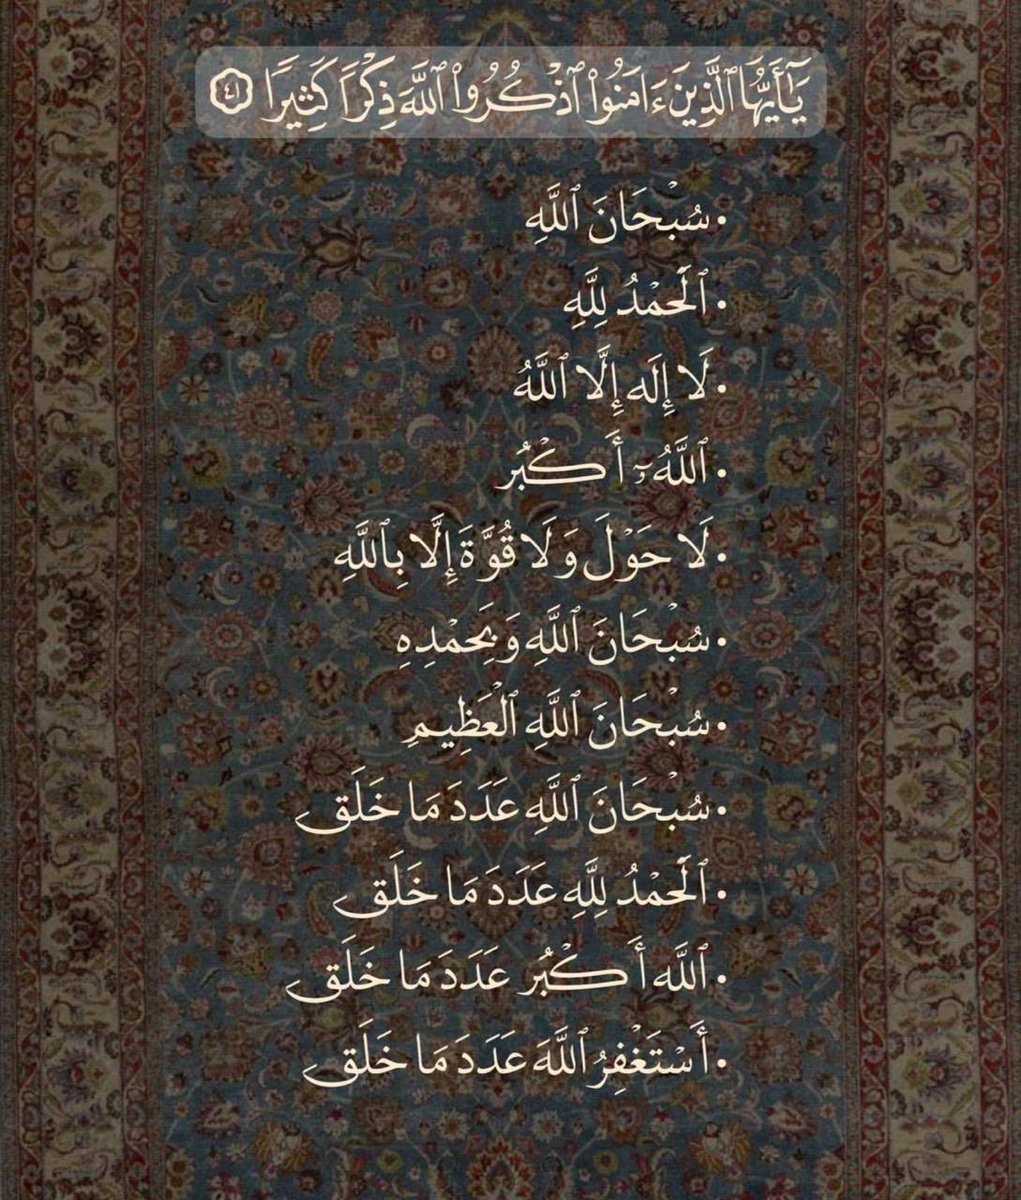 يَٰٓأَيُّهَا ٱلَّذِينَ ءَامَنُوا۟ ٱذْكُرُوا۟ ٱللَّهَ ذِكْرًا كَثِيرًا ٤١
• سُبْحَانَ ٱللَّهِ
• ٱلْحَمْدُ لِلَّهِ
• لَا إِلَه إِلَّا ٱللَّهُ
• ٱللَّهُۥٓ أَكْبُر
• لَا حَوْلَ وَلَا قُوَّةَ إِلَّا بِٱللَّهِ
• سُبْحَانَ ٱللَّهِ وَبِحَمْدِهِ
• سُبْحَانَ ٱللَّهِ ٱلْعَظِيمِ
• سُبْحَانَ ٱللَّهِ عَدَدَ مَا خَلَق
• ٱلْحَمْدُ لِلَّهِ عَدَدَ مَا خَلَق
• ٱللَّه أَكْبُر عَدَدَ مَا خَلَق
• أَسْتَغْفِرُ ٱللَّهَ عَدَدَ مَا خَلَق